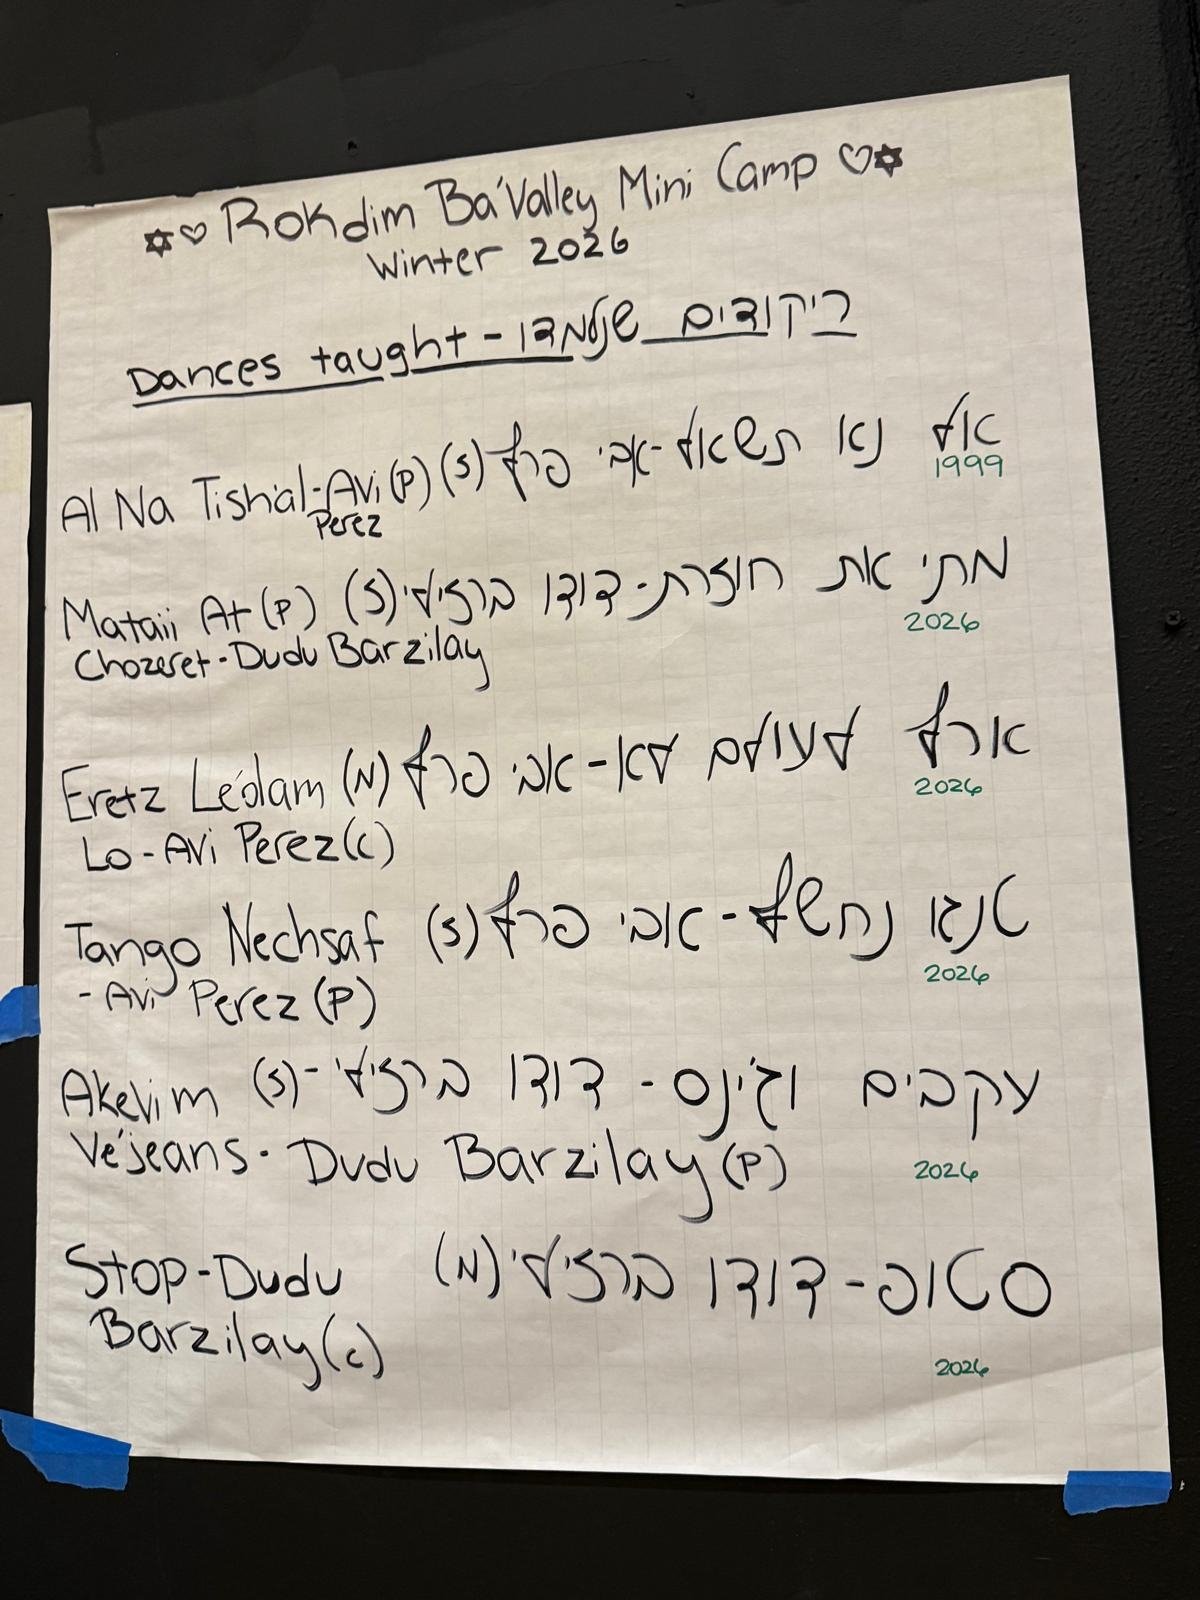 ✡♡ Rokdim Ba'Valley Mini Camp ♡✡
Winter 2026
Dances taught - ריקודים שנלמדו
Al Na Tish'al-Avi (P) (ז) אל נא תשאל-אבי פרץ
Perez
1999
Mataii At (P) (ז) מתי את חוזרת-דודו ברזילי
Chozeret-Dudu Barzilay
2026
Eretz Le'olam (מ) ארץ לעולם לא-אבי פרץ
Lo-Avi Perez (c)
2026
Tango Nechsaf (ז) טנגו נחשף-אבי פרץ
-Avi Perez (P)
2026
Akevim (ז)- עקבים וג'ינס - דודו ברזילי
Ve'jeans- Dudu Barzilay (P)
2026
Stop-Dudu (מ) סטופ-דודו ברזילי
Barzilay (c)
2026